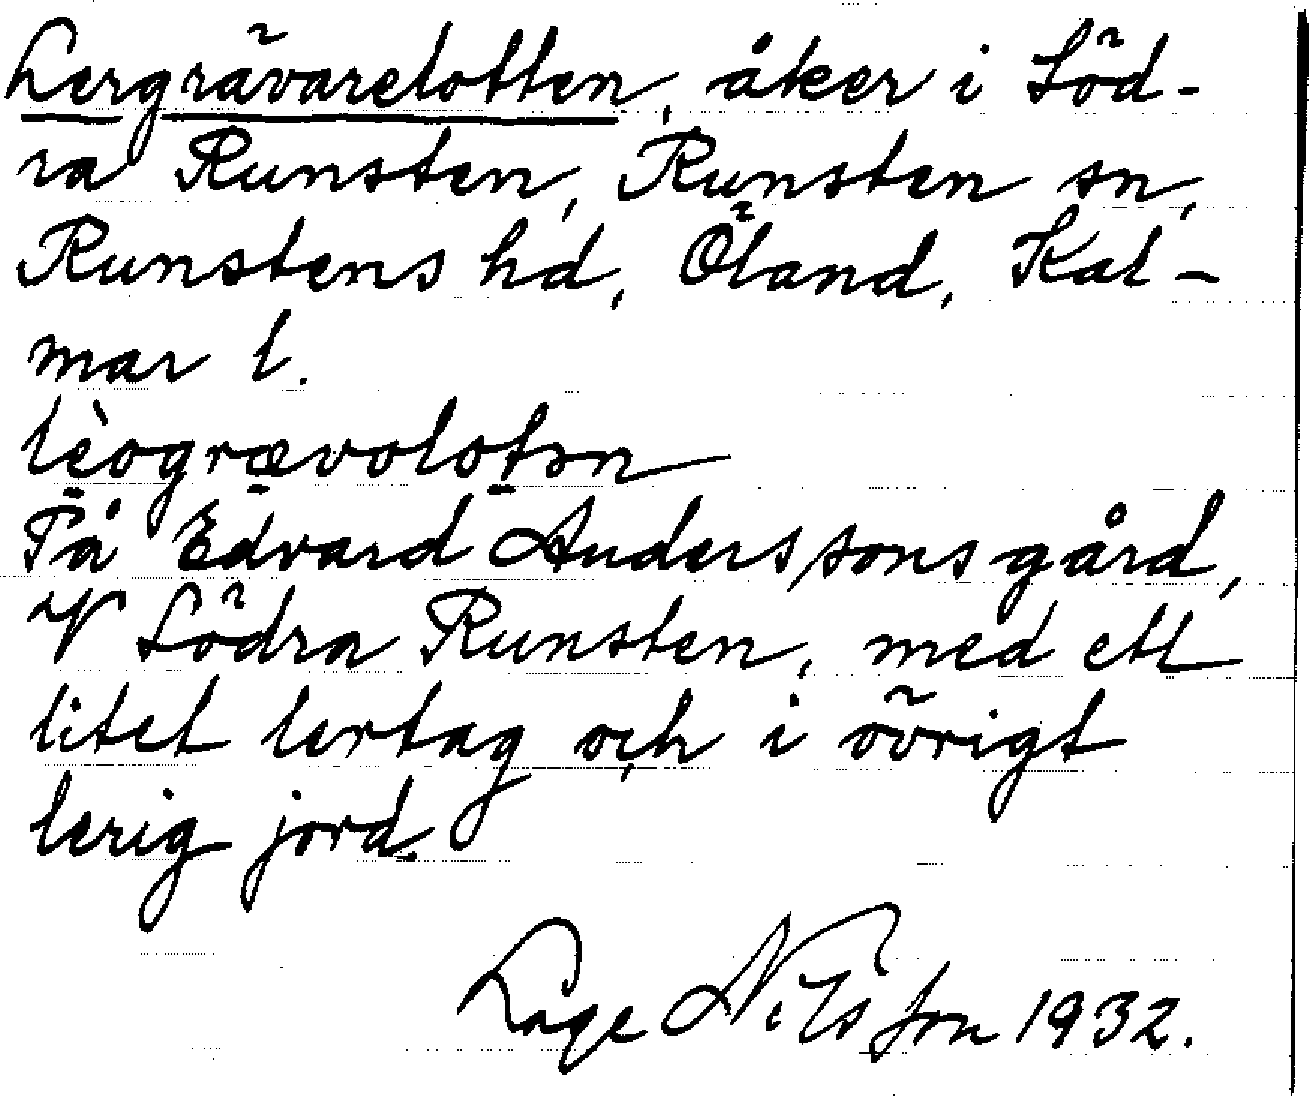 Lergrävarelotten, åker i Söd-
ra Runsten, Runsten sn,
Runstens hd, Öland, Kal-
mar l.
lèogrævolotən
På Edvard Anderssons gård,
V Södra Runsten, med ett
litet lertag och i övrigt
lerig jord.
Lage Nilsson 1932.